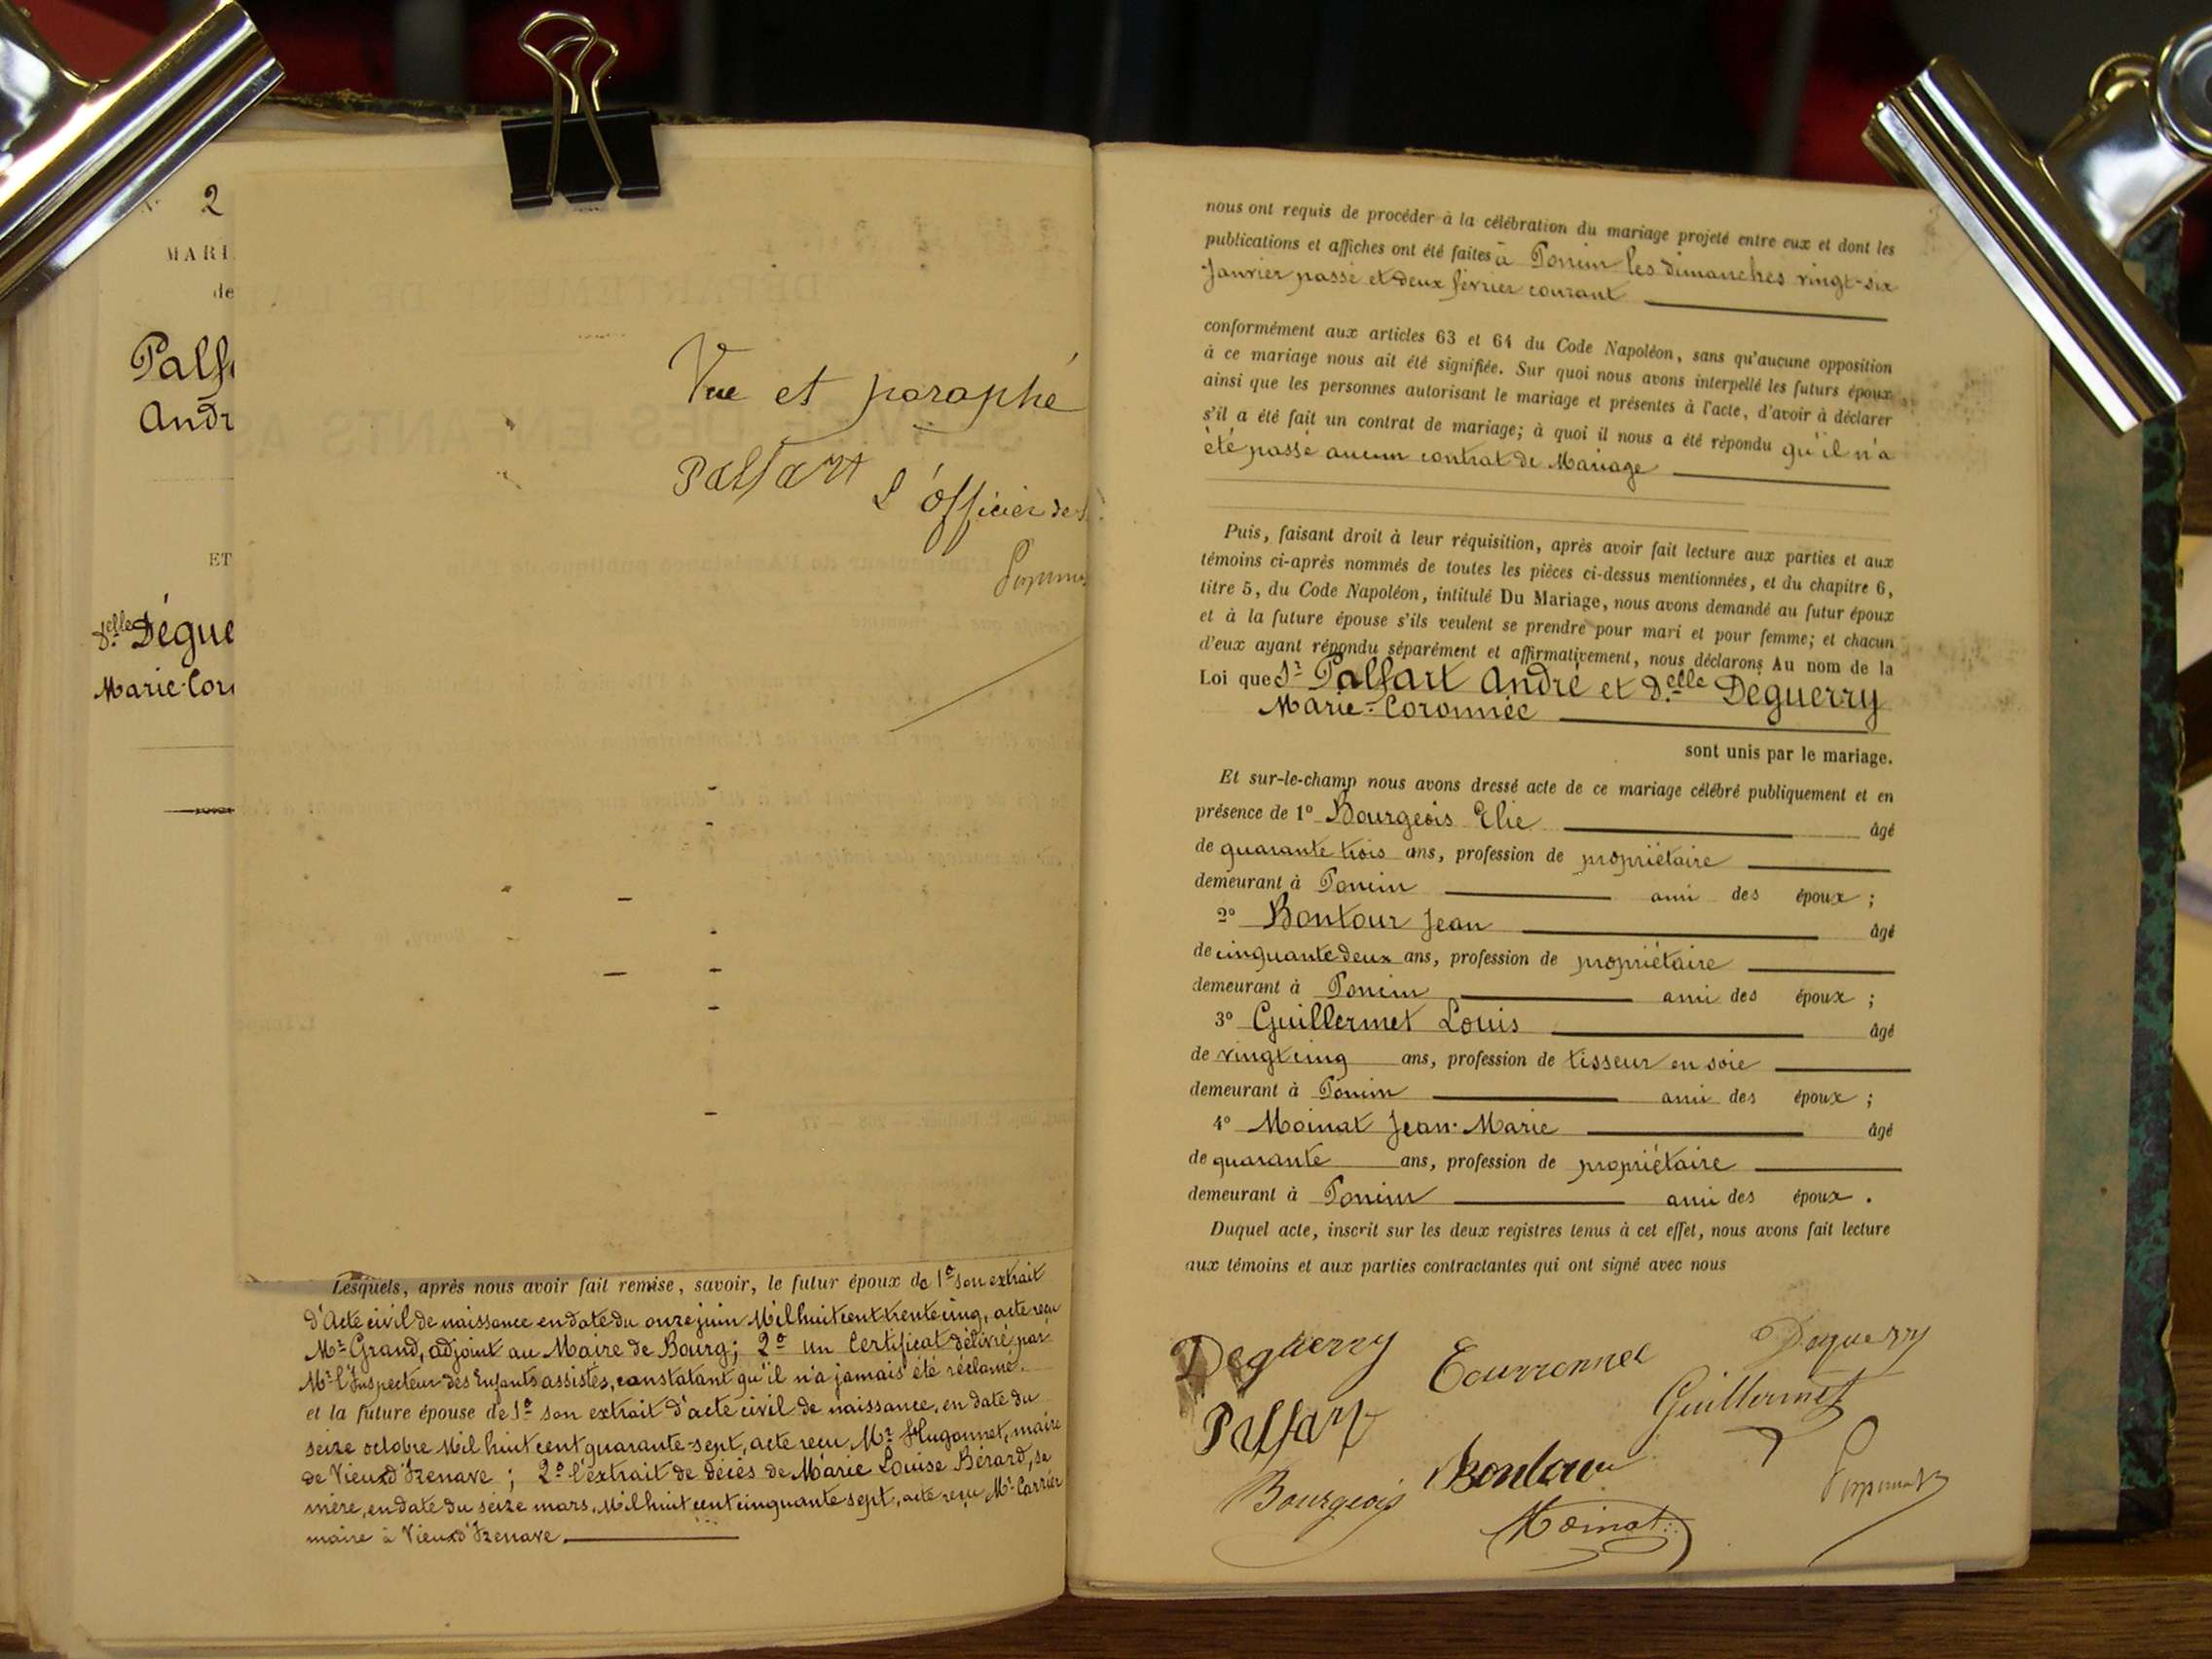 2
MARI
de
Palf
André
ET
d.elle Dégue
Marie-Cor
Vue et paraphé
Palfart l'Officier de
Lesquels, après nous avoir fait remise, savoir, le futur époux de 1º son extrait
d'Acte civil de naissance en date du onze juin Mil huit cent trente cinq, acte reçu
Mr Grand, adjoint au Maire de Bourg; 2º un Certificat délivré par
Mr l'Inspecteur des Enfants assistés, constatant qu'il n'a jamais été réclamé.
et la future épouse de 1º son extrait d'acte civil de naissance, en date du
seize octobre Mil huit cent quarante-sept, acte reçu Mr Hugonnet, maire
de Vieux d'Izenave ; 2º l'extrait de décès de Marie Louise Bérard, sa
mère, en date du seize mars, Mil huit cent cinquante sept, acte reçu Mr Carrier
maire à Vieux d'Izenave.
nous ont requis de procéder à la célébration du mariage projeté entre eux et dont les
publications et affiches ont été faites à Poncin les dimanches vingt-six
Janvier passé et deux février courant
conformément aux articles 63 et 64 du Code Napoléon, sans qu'aucune opposition
à ce mariage nous ait été signifiée. Sur quoi nous avons interpellé les futurs époux
ainsi que les personnes autorisant le mariage et présentes à l'acte, d'avoir à déclarer
s'il a été fait un contrat de mariage; à quoi il nous a été répondu qu'il n'a
été passé aucun contrat de Mariage
Puis, faisant droit à leur réquisition, après avoir fait lecture aux parties et aux
témoins ci-après nommés de toutes les pièces ci-dessus mentionnées, et du chapitre 6,
titre 5, du Code Napoléon, intitulé Du Mariage, nous avons demandé au futur époux
et à la future épouse s'ils veulent se prendre pour mari et pour femme; et chacun
d'eux ayant répondu séparément et affirmativement, nous déclarons Au nom de la
Loi que Sr Palfart André et d.elle Déguerry
Marie-Coronnée
sont unis par le mariage.
Et sur-le-champ nous avons dressé acte de ce mariage célébré publiquement et en
présence de 1º Bourgeois Elie âgé
de quarante trois ans, profession de propriétaire
demeurant à Poncin ami des époux ;
2º Bontour Jean âgé
de cinquante deux ans, profession de propriétaire
demeurant à Poncin ami des époux ;
3º Guillermet Louis âgé
de vingt cinq ans, profession de tisseur en soie
demeurant à Poncin ami des époux ;
4º Moinat Jean-Marie âgé
de quarante ans, profession de propriétaire
demeurant à Poncin ami des époux .
Duquel acte, inscrit sur les deux registres tenus à cet effet, nous avons fait lecture
aux témoins et aux parties contractantes qui ont signé avec nous
Deguerry Courronnee Deguerry
Palfart Guillermet
Bourgeois Bontour
Moinat